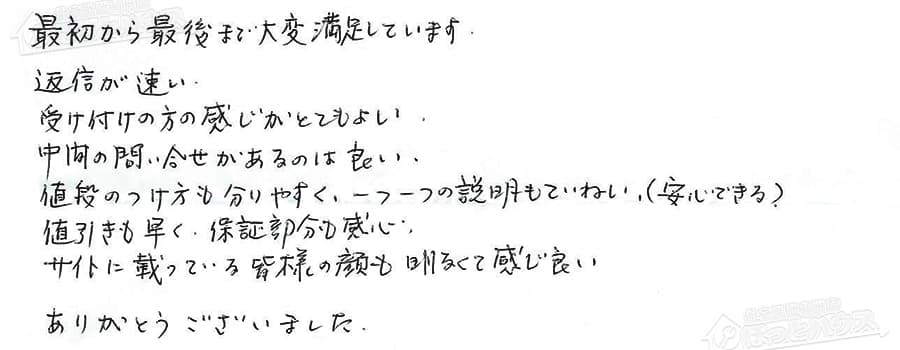 最初から最後まで大変満足しています.
返信が速い.
受け付けの方の感じがとてもよい.
中間の問い合せがあるのは良い.
値段のつけ方も分りやすく、一つ一つの説明もていねい.(安心できる)
値引きも早く.保証部分も感心.
サイトに載っている皆様の顔も明るくて感じ良い
ありがとうございました.